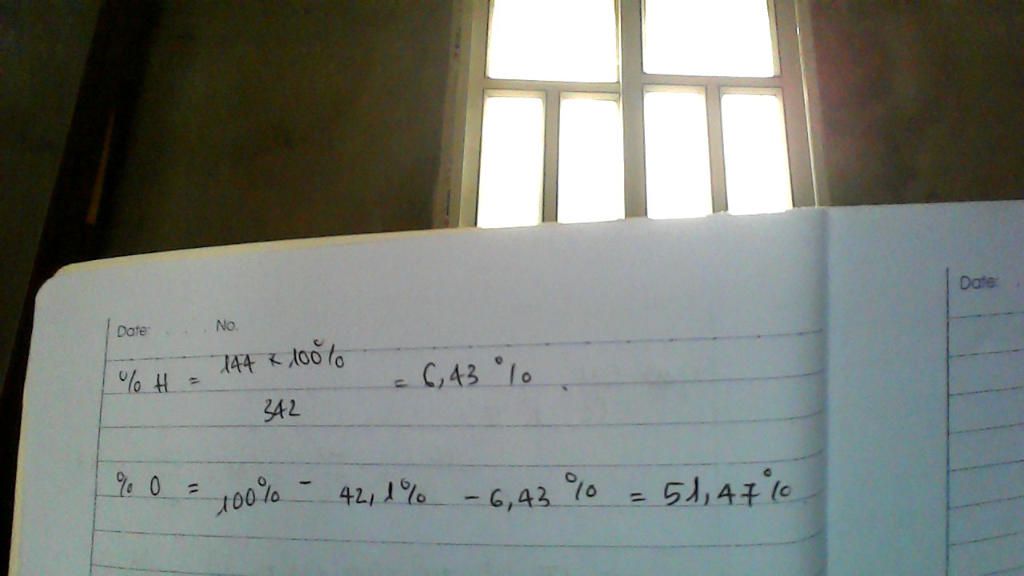 Date: . . . . No.
Date: .
% H = 144 x 100% = 6,43 % .
342
% O = 100% - 42,1% - 6,43 % = 51,47 %